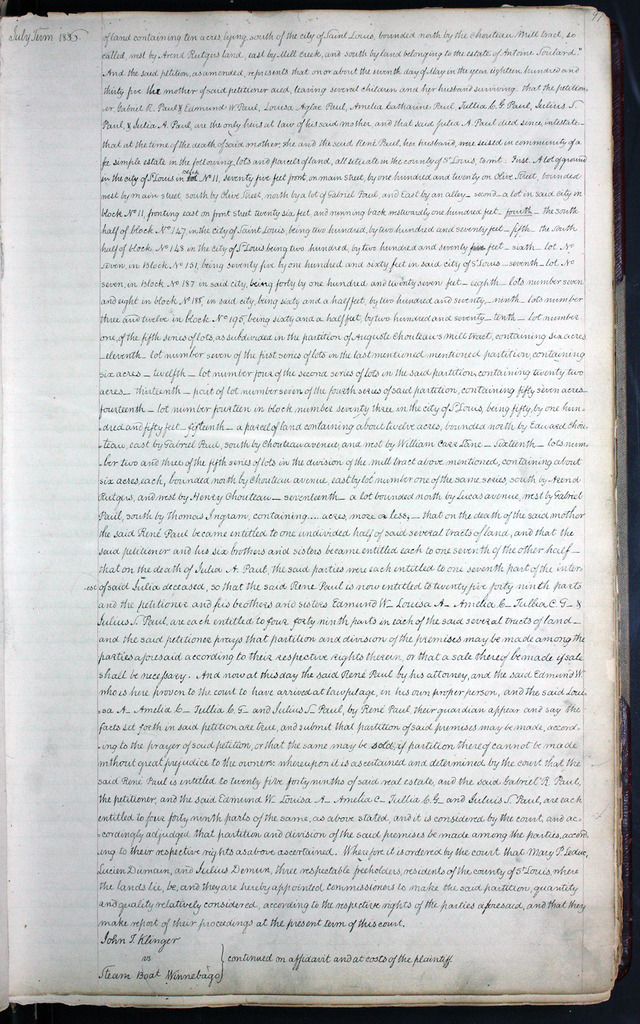 July Term 1835.
of land containing ten acres, lying south of the city of Saint Louis, bounded north by the Chouteau Mill tract, so
called, west by Arend Rutgers land, east by Mill Creek, and south by land belonging to the estate of Antoine Soulard."
And the said petition, as amended, represents that on or about the seventh day of May in the year eighteen hundred and
thirty five the mother of said petitioner died, leaving several children and her husband surviving. that the petition-
er, Gabriel R. Paul & Edmund W. Paul, Louisa Aglae Paul, Amelia Catharine Paul, Tullia C. G. Paul, Julius S.
Paul, & Julia A. Paul, are the only heirs at law of his said mother, and that said Julia A. Paul died since, intestate-
that at the time of the death of said mother, she and the said René Paul, her husband, were seized in community of a
fee simple estate in the following lots and parcels of land, all situate in the county of St Louis, to wit: First. A lot of ground
in the city of St Louis in block No 11, seventy five feet front, on main street, by one hundred and twenty on Olive Street, bounded
west by main street south by Olive Street, north by a lot of Gabriel Paul, and East by an alley- second- a lot in said city in
block No 11, fronting east on front street twenty six feet, and running back westwardly one hundred feet- fourth- the south
half of block No 147, in the city of Saint Louis, being two hundred, by two hundred and seventy feet- fifth- the South
half of block No 148 in the city of St Louis being two hundred, by two hundred and seventy feet- sixth- lot No
seven, in Block No 151, being seventy five by one hundred and sixty feet in said city of St Louis- seventh- lot No
seven, in block No 187 in said city, being forty by one hundred and twenty seven feet- eighth- lots number seven
and eight in block No 188, in said city, being sixty and a half feet, by two hundred and seventy- ninth- lots number
three and twelve in block No 195, being sixty and a half feet, by two hundred and seventy- tenth- lot number
one, of the fifth series of lots, as subdivided in the partition of Auguste Chouteau's Mill tract, containing six acres
-eleventh- lot number seven of the first series of lots in the last mentioned mentioned partition, containing
six acres- twelfth- lot number four of the second series of lots in the said partition, containing twenty two
acres- thirteenth- part of lot number seven of the fourth series of said partition, containing fifty seven acres-
fourteenth- lot number fourteen in block number seventy three in the city of St Louis, being fifty, by one hun-
dred and fifty feet- fifteenth- a parcel of land containing about twelve acres, bounded north by Edward Chou-
teau, east by Gabriel Paul, south by Chouteau avenue, and west by William Carr Lane- Sixteenth- lots num-
ber two and three of the fifth series of lots in the division of the mill tract above mentioned, containing about
six acres each, bounded north by Chouteau avenue, east by lot number one of the same series, south by Arend
Rutgers, and west by Henry Chouteau- seventeenth- a lot bounded north by Lucas avenue, west by Gabriel
Paul, south by Thomas Ingram, containing .... acres, more or less;- that on the death of the said mother
the said René Paul became entitled to one undivided half of said several tracts of land, and that the
said petitioner and his six brothers and sisters became entitled each to one seventh of the other half-
that on the death of Julia A. Paul, the said parties were each entitled to one seventh part of the inter-
est of said Julia deceased, so that the said René Paul is now entitled to twenty five forty ninth parts
and the petitioner and his brothers and sisters Edmund W- Louisa A- Amelia C- Tullia C. G- &
Julius S. Paul, are each entitled to four forty ninth parts in each of the said several tracts of land-
and the said petitioner prays that partition and division of the premises may be made among the
parties aforesaid according to their respective rights therein, or that a sale thereof be made if sale
shall be necessary. And now at this day the said René Paul by his attorney, and the said Edmund W.
who is here proven to the court to have arrived at lawful age, in his own proper person, and the said Loui-
sa A- Amelia C- Tullia C. G- and Julius S. Paul, by René Paul, their guardian appear and say the
facts set forth in said petition are true, and submit that partition of said premises may be made, accord-
ing to the prayer of said petition, or that the same may be sold, if partition thereof cannot be made
without great prejudice to the owners: whereupon it is ascertained and determined by the court that the
said René Paul is entitled to twenty five forty ninths of said real estate, and the said Gabriel R. Paul,
the petitioner, and the said Edmund W. Louisa A- Amelia C- Tullia C. G- and Julius S. Paul, are each
entitled to four forty ninth parts of the same, as above stated, and it is considered by the court, and ac-
cordingly adjudged that partition and division of the said premises be made among the parties, accord-
ing to their respective rights as above ascertained. Wherefore it is ordered by the court that Mary P. Leduc,
Lucien Dumain, and Julius Demun, three respectable freeholders, residents of the county of St Louis, where
the lands lie, be, and they are hereby appointed commissioners to make the said partition, quantity
and quality relatively considered, according to the respective rights of the parties aforesaid, and that they
make report of their proceedings at the present term of this court.
John T. Klinger
vs
Steam Boat Winnebago
continued on affidavit and at costs of the plaintiff.